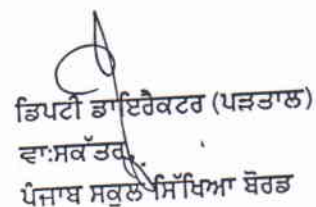 ਡਿਪਟੀ ਡਾਇਰੈਕਟਰ (ਪੜਤਾਲ)
ਵਾ:ਸਕੱਤਰ,
ਪੰਜਾਬ ਸਕੂਲ ਸਿੱਖਿਆ ਬੋਰਡ